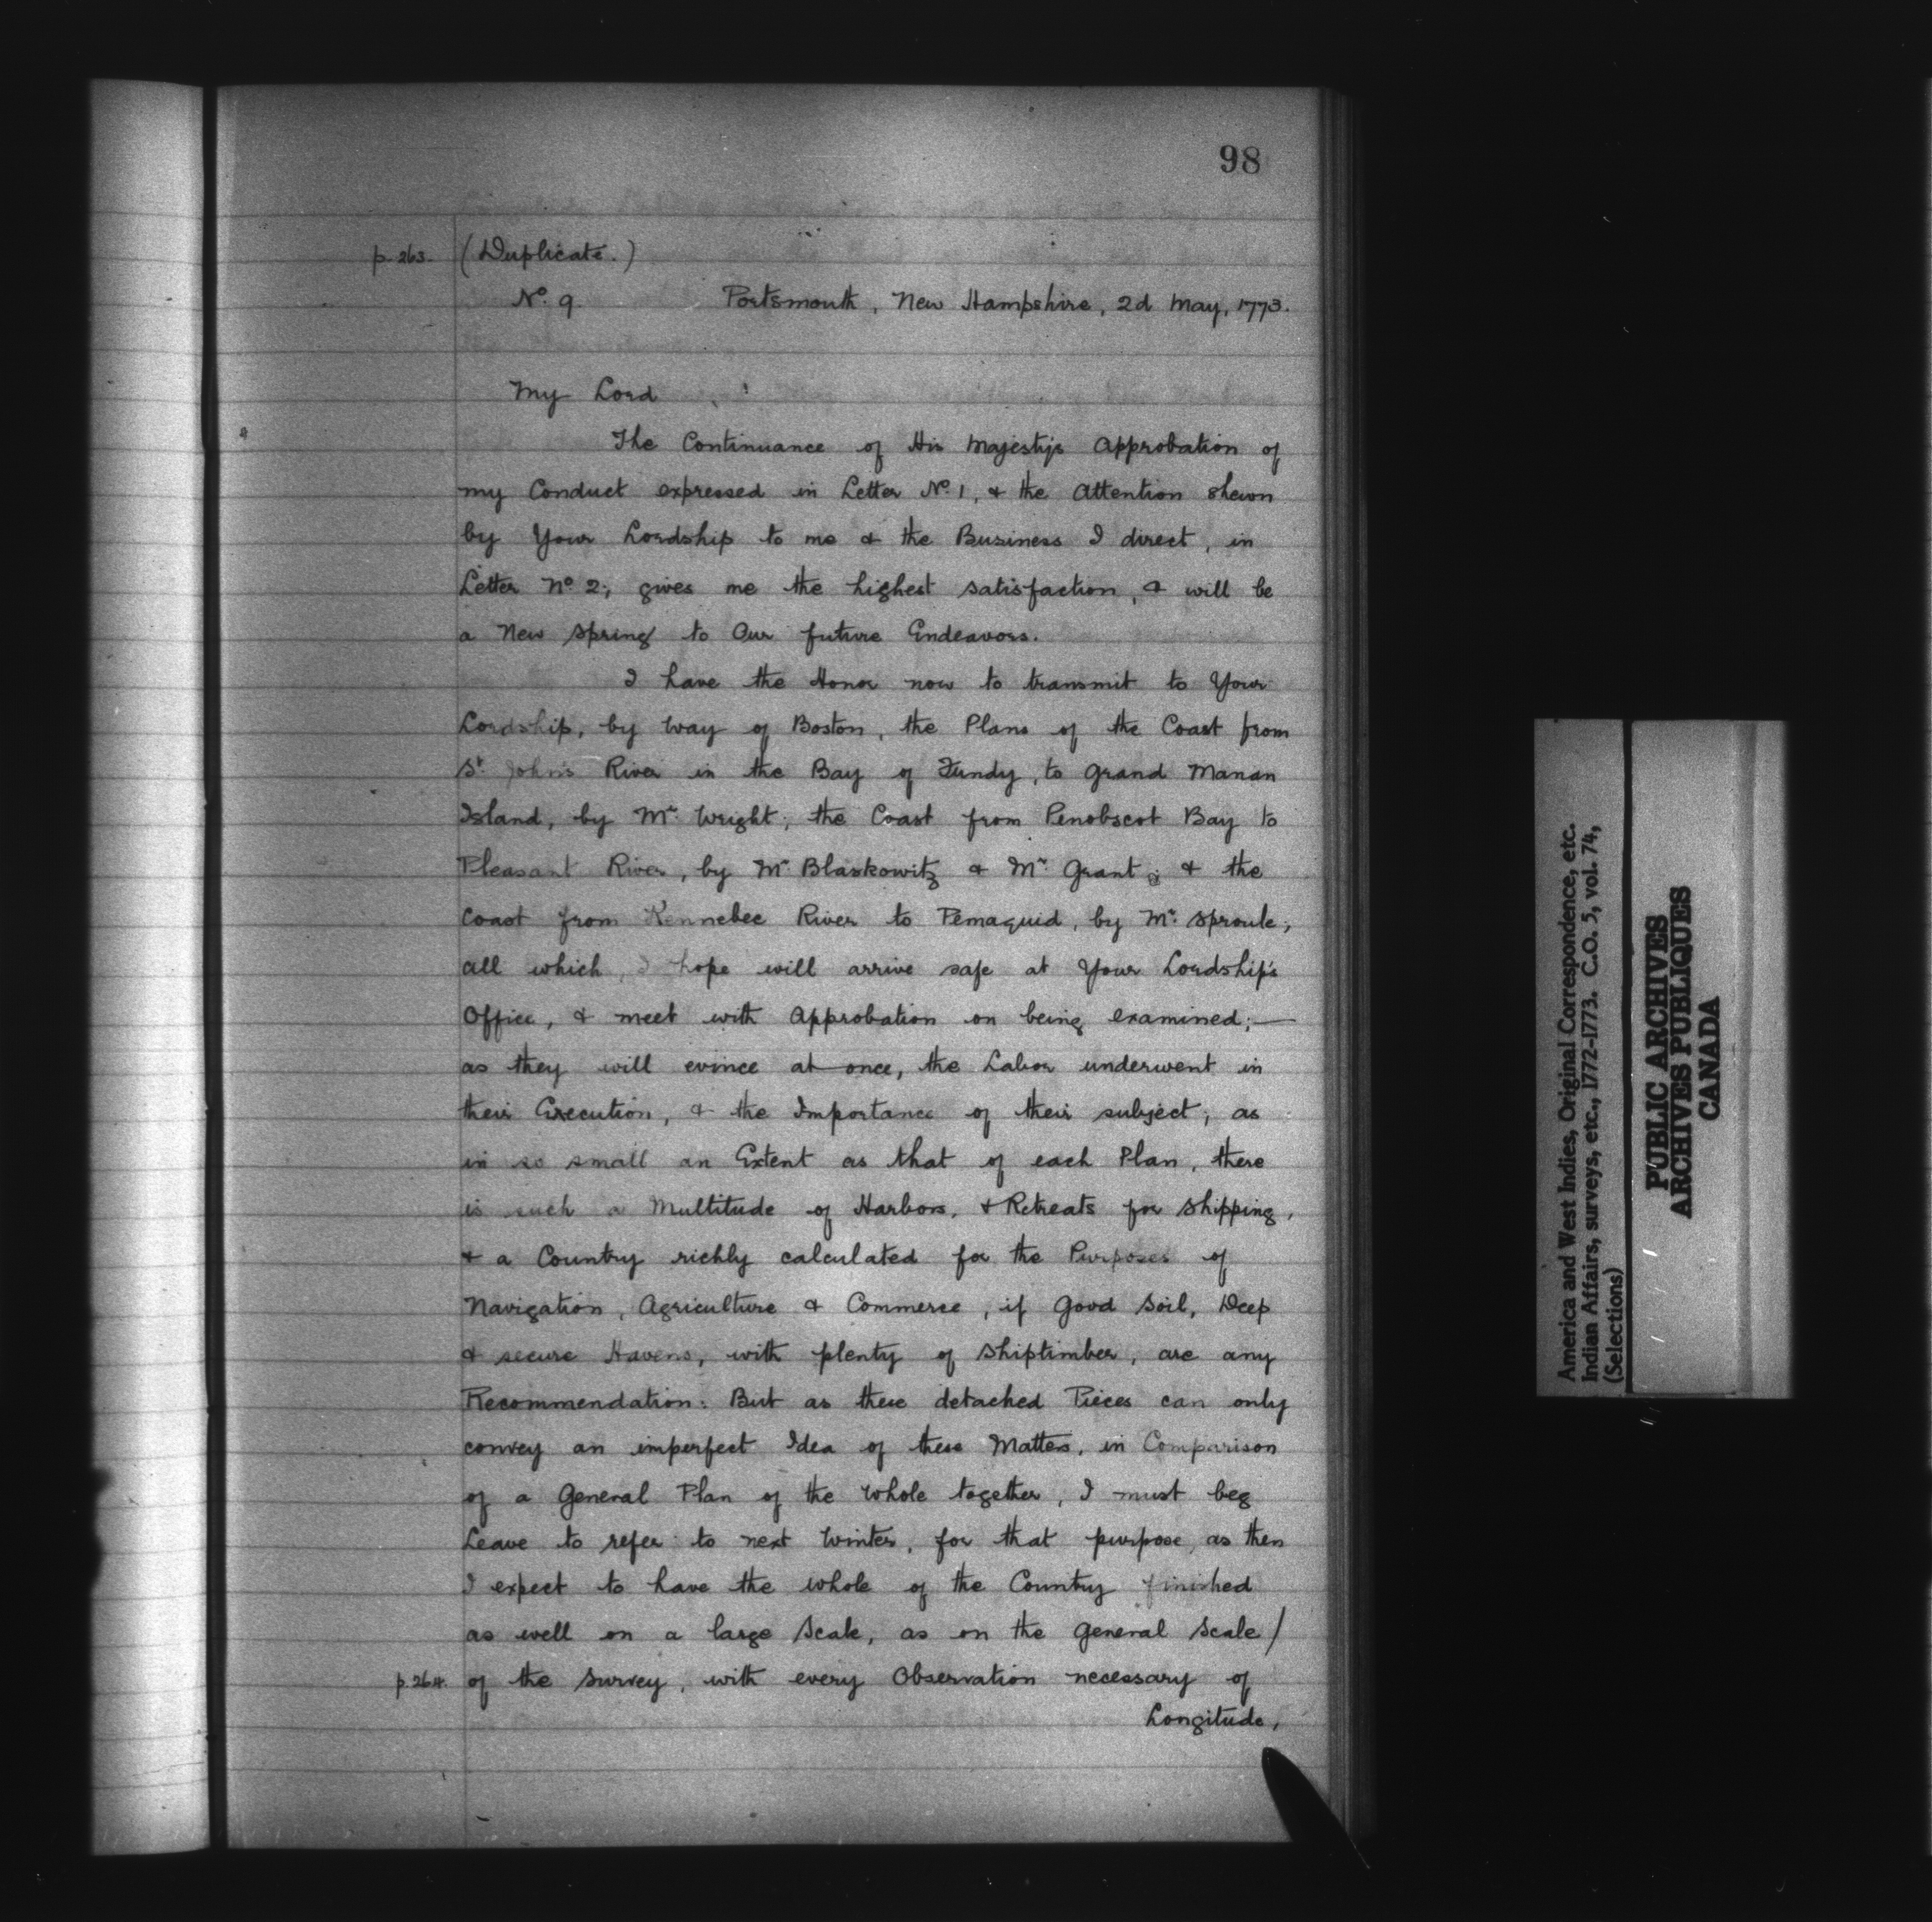 98
p. 263. (Duplicate.)
No. 9. Portsmouth, New Hampshire, 2d May, 1773.
My Lord
The Continuance of His Majestys Approbation of
my Conduct expressed in Letter No. 1, & the Attention shewn
by Your Lordship to me & the Business I direct, in
Letter No 2; gives me the highest satisfaction, & will be
a New Spring to Our future Endeavors.
I have the Honor now to transmit to Your
Lordship, by Way of Boston, the Plans of the Coast from
St. John's River in the Bay of Fundy, to Grand Manan
Island, by Mr. Wright; the Coast from Penobscot Bay to
Pleasant River, by Mr. Blaskowitz & Mr. Grant; & the
Coast from Kennebec River to Pemaquid, by Mr. Sproule;
all which, I hope will arrive safe at Your Lordship's
Office, & meet with Approbation on being examined;—
as they will evince at once, the Labor underwent in
their Execution, & the Importance of their subject; as
in so small an Extent as that of each Plan, there
is such a Multitude of Harbors, & Retreats for Shipping,
& a Country richly calculated for the Purposes of
Navigation, Agriculture & Commerce, if Good Soil, Deep
& secure Havens, with plenty of Shiptimber, are any
Recommendation: But as these detached Pieces can only
convey an imperfect Idea of these Matters, in Comparison
of a General Plan of the Whole together, I must beg
Leave to refer to next Winter, for that purpose, as then
I expect to have the whole of the Country finished
as well on a large Scale, as on the General Scale /
p. 264. of the Survey, with every Observation necessary of
Longitude,
America and West Indies, Original Correspondence, etc.
Indian Affairs, surveys, etc., 1772-1773. C.O. 5, vol. 74,
(Selections)
PUBLIC ARCHIVES
ARCHIVES PUBLIQUES
CANADA